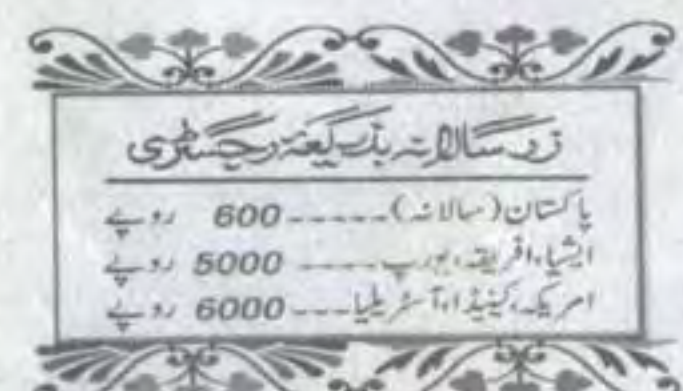 زر سالانہ بذریعہ رجسٹری
پاکستان (سالانہ)-----600 روپے
ایشیا، افریقہ، یورپ-----5000 روپے
امریکہ، کینیڈا، آسٹریلیا----6000 روپے